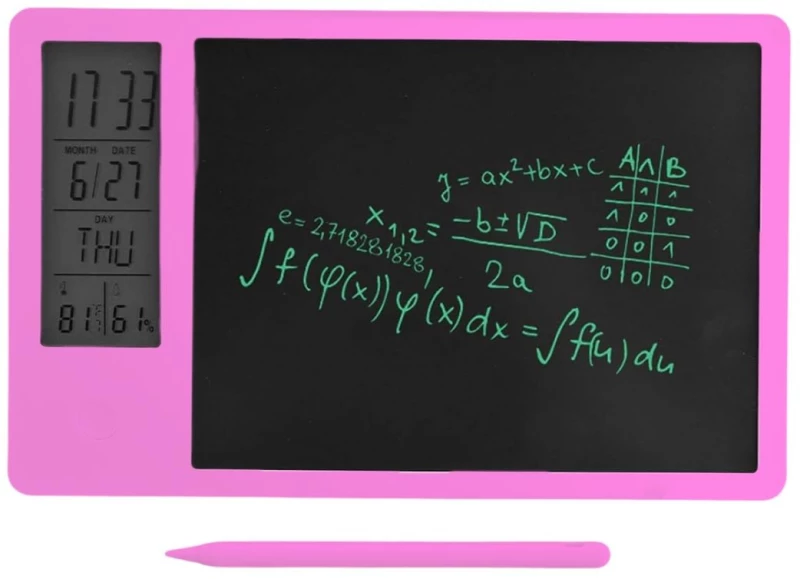 17 33
MONTH DATE
6/27
DAY
THU
81 61%
y = ax²+bx+c
A|∧|B
1|1|1
1|0|0
0|0|1
0|0|0
e = 2,718281828,
x₁,₂ = (-b±√D)/2a
∫f(φ(x))φ'(x)dx = ∫f(u)du